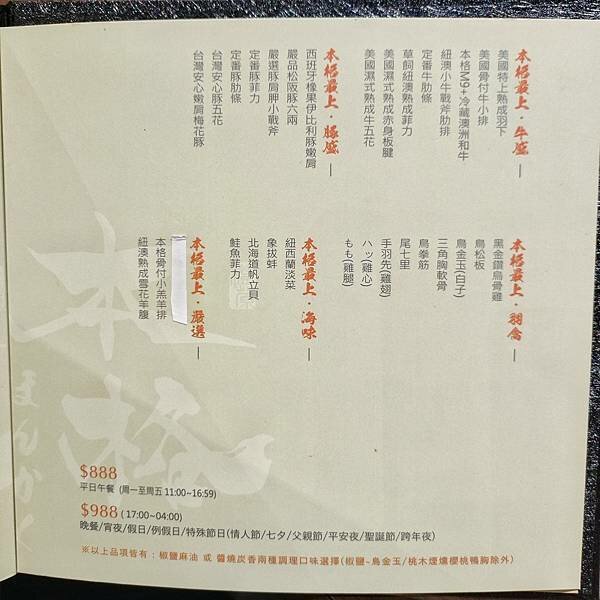 本格最上・牛盛
美國特上熟成羽下
美國骨付牛小排
本格M9+冷藏澳洲和牛
紐澳小牛戰斧肋排
定番牛肋條
草飼紐澳熟成菲力
美國濕式熟成赤身板腱
美國濕式熟成牛五花
本格最上・豚盛
西班牙橡果伊比利豚嫩肩
嚴品松阪豚六兩
嚴選豚肩胛小戰斧
定番豚菲力
定番豚肋條
台灣安心豚五花
台灣安心嫩肩梅花豚
本格最上・羽禽
黑金鑽烏骨雞
鳥松板
鳥金玉(白子)
三角胸軟骨
鳥拳筋
尾七里
手羽先(雞翅)
ハッ(雞心)
もも(雞腿)
本格最上・海味
紐西蘭淡菜
象拔蚌
北海道帆立貝
鮭魚菲力
本格最上・嚴選
本格骨付小羔羊排
紐澳熟成雪花羊腹
本格
ほんかく
$888
平日午餐 (周一至周五 11:00~16:59)
$988 (17:00~04:00)
晚餐/宵夜/假日/例假日/特殊節日(情人節/七夕/父親節/平安夜/聖誕節/跨年夜)
※以上品項皆有：椒鹽麻油 或 醬燒炭香兩種調理口味選擇(椒鹽~鳥金玉/桃木煙燻櫻桃鴨胸除外)